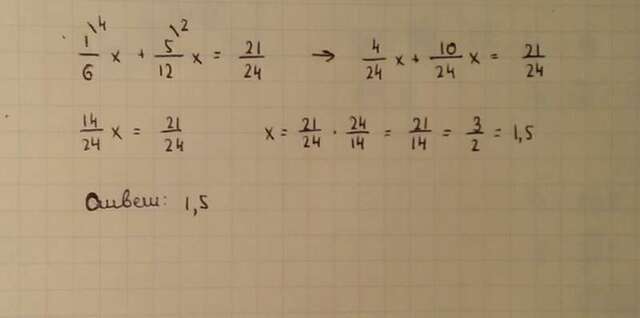 1\4/6 x + 5\2/12 x = 21/24 → 4/24 x + 10/24 x = 21/24
14/24 x = 21/24 x = 21/24 · 24/14 = 21/14 = 3/2 = 1,5
Ответ: 1,5